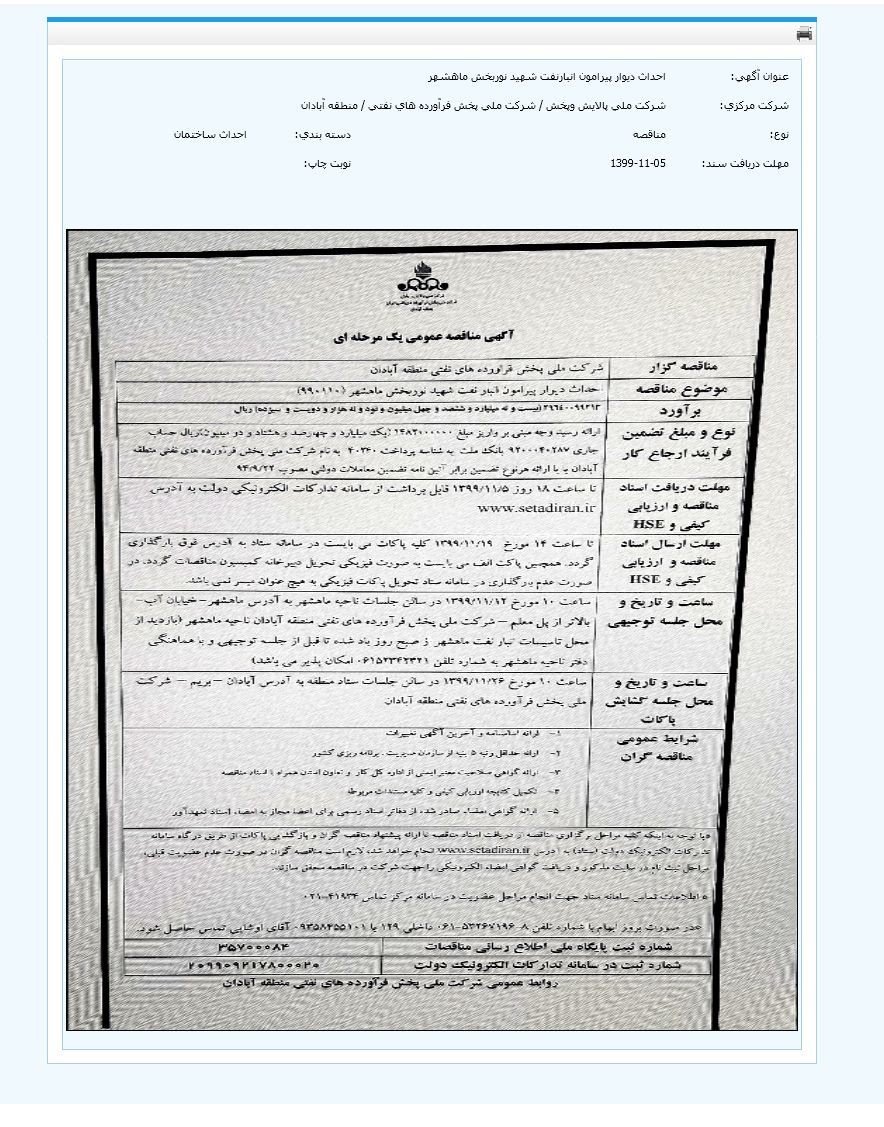 عنوان آگهی: احداث دیوار پیرامون انبارنفت شهید نوربخش ماهشهر
شرکت مرکزی: شرکت ملی پالایش وپخش / شرکت ملی پخش فرآورده های نفتی / منطقه آبادان
نوع: مناقصه دسته بندی: احداث ساختمان
مهلت دریافت سند: 1399-11-05 نوبت چاپ:
آگهی مناقصه عمومی یک مرحله ای
مناقصه گزار شرکت ملی پخش فراورده های نفتی منطقه آبادان
موضوع مناقصه حداث دیوار پیرامون انبار نفت شهید نوربخش ماهشهر (۹۹۰۱۱۰)
برآورد (بیست و نه میلیارد و ششصد و چهل میلیون و نود و نه هزار و دویست و سیزده) ریال
نوع و مبلغ تضمین ارائه رسید وجه مبنی بر واریز مبلغ ۱۴۸۲۰۰۰۰۰۰ (یک میلیارد و چهارصد و هشتاد و دو میلیون)ریال حساب
فرآیند ارجاع کار جاری ۹۲۰۰۰۴۰۲۸۷ بانک ملت به شناسه پرداخت ۴۰۳۴۰ به نام شرکت ملی پخش فرآورده های نفتی منطقه
آبادان یا با ارائه هرنوع تضمین برابر آئین نامه تضمین معاملات دولتی مصوب ۹۴/۹/۲۲
مهلت دریافت اسناد تا ساعت ۱۸ روز ۱۳۹۹/۱۱/۵ قابل برداشت از سامانه تدارکات الکترونیکی دولت به آدرس
مناقصه و ارزیابی www.setadiran.ir
کیفی و HSE
مهلت ارسال اسناد تا ساعت ۱۴ مورخ ۱۳۹۹/۱۱/۱۹ کلیه پاکات می بایست در سامانه ستاد به آدرس فوق بارگذاری
مناقصه و ارزیابی گردد. همچنین پاکت الف می بایست به صورت فیزیکی تحویل دبیرخانه کمیسیون مناقصات گردد. در
کیفی و HSE صورت عدم بارگذاری در سامانه ستاد تحویل پاکات فیزیکی به هیچ عنوان میسر نمی باشد.
ساعت و تاریخ و ساعت ۱۰ مورخ ۱۳۹۹/۱۱/۱۲ در سالن جلسات ناحیه ماهشهر به آدرس ماهشهر – خیابان آب-
محل جلسه توجیهی بالاتر از پل معلم – شرکت ملی پخش فرآورده های نفتی منطقه آبادان ناحیه ماهشهر (بازدید از
محل تاسیسات انبار نفت ماهشهر از صبح روز یاد شده تا قبل از جلسه توجیهی و با هماهنگی
دفتر ناحیه ماهشهر به شماره تلفن ۰۶۱۵۲۳۴۲۳۲۱ امکان پذیر می باشد)
ساعت و تاریخ و ساعت ۱۰ مورخ ۱۳۹۹/۱۱/۲۶ در سالن جلسات ستاد منطقه به آدرس آبادان – بریم – شرکت
محل جلسه گشایش ملی پخش فرآورده های نفتی منطقه آبادان
پاکات
شرایط عمومی ۱- ارائه اساسنامه و آخرین آگهی تغییرات
مناقصه گران ۲- ارائه حداقل رتبه ۵ ابنیه از سازمان مدیریت ، برنامه ریزی کشور
۳- ارائه گواهی صلاحیت معتبر ایمنی از اداره کل کار و تعاون استان همراه با اسناد مناقصه
۴- تکمیل کتابچه ارزیابی کیفی و کلیه مستندات مربوطه
۵- ارائه گواهی امضاء صادر شده از دفاتر اسناد رسمی برای اعضا مجاز به امضاء اسناد تعهدآور
با توجه به اینکه کلیه مراحل برگزاری مناقصه از دریافت اسناد مناقصه تا ارائه پیشنهاد مناقصه گران و بازگشایی پاکات از طریق درگاه سامانه
تدارکات الکترونیک دولت (ستاد) به آدرس www.setadiran.ir انجام خواهد شد، لازم است مناقصه گران در صورت عدم عضویت قبلی،
مراحل ثبت نام در سایت مذکور و دریافت گواهی امضاء الکترونیکی را جهت شرکت در مناقصه محقق سازند.
اطلاعات تماس سامانه ستاد جهت انجام مراحل عضویت در سامانه مرکز تماس ۴۱۹۳۴-۰۲۱
در صورت بروز ابهام با شماره تلفن ۸-۵۳۲۶۷۱۹۶-۰۶۱ داخلی ۱۲۹ یا ۰۹۳۵۸۴۵۵۱۰۱ آقای اوشایی تماس حاصل شود.
شماره ثبت پایگاه ملی اطلاع رسانی مناقصات ۳۵۷۰۰۰۸۴
شماره ثبت در سامانه تدارکات الکترونیک دولت ۲۰۹۹۰۹۲۱۷۸۰۰۰۰۲۰
روابط عمومی شرکت ملی پخش فرآورده های نفتی منطقه آبادان